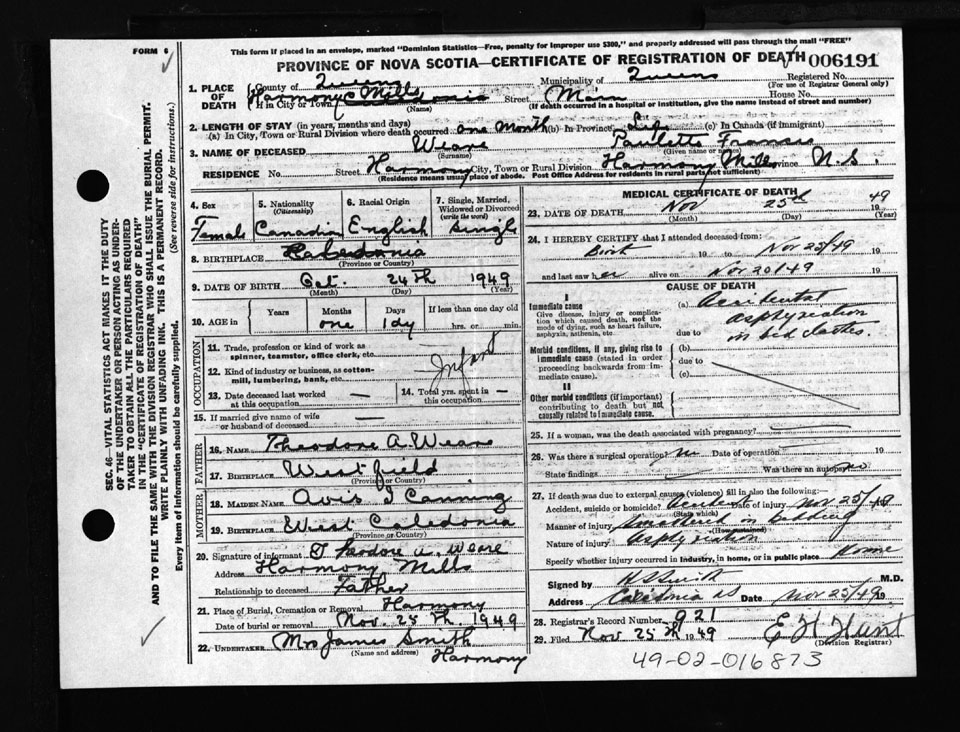 FORM 6
This form if placed in an envelope, marked "Dominion Statistics—Free, penalty for improper use $300," and properly addressed will pass through the mail "FREE"
PROVINCE OF NOVA SCOTIA—CERTIFICATE OF REGISTRATION OF DEATH 006191
1. PLACE OF DEATH
County of Queens Municipality of Queens Registered No.
(For use of Registrar General only)
If in City or Town Harmony Mills Street Main House No.
(Name) (If death occurred in a hospital or institution, give the name instead of street and number)
2. LENGTH OF STAY (in years, months and days)
(a) In City, Town or Rural Division where death occurred one month (b) In Province Life (c) In Canada (if immigrant)
3. NAME OF DECEASED Weare Paulette Frances
(Surname) (Given name or names)
RESIDENCE No. Street Harmony City, Town or Rural Division Harmony Mills Province N.S.
(Residence means usual place of abode. Post Office Address for residents in rural parts not sufficient)
4. Sex Female
5. Nationality (Citizenship) Canadian
6. Racial Origin English
7. Single, Married, Widowed or Divorced (write the word) Single
8. BIRTHPLACE
(Province or Country)
9. DATE OF BIRTH Oct. 24th 1949
(Month) (Day) (Year)
10. AGE in Years Months one Days 1 dy If less than one day old hrs. or min.
OCCUPATION
11. Trade, profession or kind of work as spinner, teamster, office clerk, etc.
12. Kind of industry or business, as cotton-mill, lumbering, bank, etc.
Infant
13. Date deceased last worked at this occupation —
14. Total yrs. spent in this occupation —
15. If married give name of wife or husband of deceased —
FATHER
16. NAME Theodore A. Weare
17. BIRTHPLACE Westfield
(Province or Country)
MOTHER
18. MAIDEN NAME Avis I Canning
19. BIRTHPLACE West Caledonia
(Province or Country)
20. Signature of informant Theodore A. Weare
Address Harmony Mills
Relationship to deceased Father
21. Place of Burial, Cremation or Removal Harmony
Date of burial or removal Nov. 25th 1949
22. UNDERTAKER Mrs James Smith
(Name and address) Harmony
MEDICAL CERTIFICATE OF DEATH
23. DATE OF DEATH Nov 25th 1949
(Month) (Day) (Year)
24. I HEREBY CERTIFY that I attended deceased from:
Birth 19 to Nov 25/49 19
and last saw her alive on Nov 20/49 19
CAUSE OF DEATH
I
Immediate cause
Give disease, injury or complication which caused death, not the mode of dying, such as heart failure, asphyxia, asthenia, etc.
(a) Accidental asphyxiation
due to in bed clothes.
Morbid conditions, if any, giving rise to immediate cause (stated in order proceeding backwards from immediate cause).
(b)
due to
(c)
II
Other morbid conditions (if important) contributing to death but not causally related to immediate cause.
25. If a woman, was the death associated with pregnancy?
26. Was there a surgical operation? no Date of operation
State findings Was there an autopsy? no
27. If death was due to external causes (violence) fill in also the following:
Accident, suicide or homicide? Accident Date of injury Nov 25/49 19
(State which)
Manner of injury Smothered in bedding
(How sustained)
Nature of injury Asphyxiation
Specify whether injury occurred in industry, in home, or in public place Home
Signed by H S Smith M.D.
Address Caledonia NS Date Nov 25/49 19
28. Registrar's Record Number 921
29. Filed Nov 25th 1949 E H Hunt
(Division Registrar)
49-02-016873
SEC. 46—VITAL STATISTICS ACT MAKES IT THE DUTY
OF THE UNDERTAKER OR PERSON ACTING AS UNDER-
TAKER TO OBTAIN ALL THE PARTICULARS REQUIRED
IN THE "CERTIFICATE OF REGISTRATION OF DEATH"
AND TO FILE THE SAME WITH THE DIVISION REGISTRAR WHO SHALL ISSUE THE BURIAL PERMIT.
WRITE PLAINLY WITH UNFADING INK. THIS IS A PERMANENT RECORD.
Every item of information should be carefully supplied. (See reverse side for instructions.)